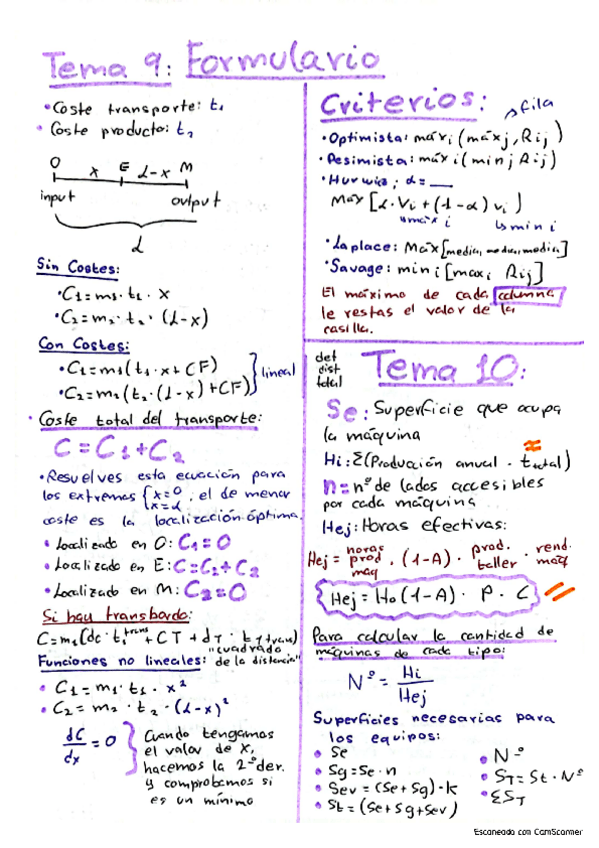 Tema 9: Formulario
• Coste transporte: t₁
• Coste producto: t₂
O x E d-x M
input output
d
Sin Costes:
• C₁ = m₁ · t₁ · x
• C₂ = m₂ · t₂ · (d-x)
Con Costes:
• C₁ = m₁(t₁ · x + CF)
• C₂ = m₂(t₂ · (d-x) + CF)
lineal
• Coste total del transporte:
C = C₁ + C₂
• Resuelves esta ecuación para
los extremos {x=0 x=d, el de menor
coste es la localización óptima.
• Localizado en O: C₁ = 0
• Localizado en E: C = C₁ + C₂
• Localizado en M: C₂ = 0
Si hay transbordo:
Funciones no lineales: "cuadrado
de la distancia"
• C₁ = m₁ · t₁ · x²
• C₂ = m₂ · t₂ · (d-x)²
dC/dx = 0
Cuando tengamos
el valor de x,
hacemos la 2ª der.
y comprobamos si
es un mínimo
Criterios: fila
• Optimista: máx i (máx j, Rij)
• Pesimista: máx i (min j Rij)
• Hurwicz; α = __
Máx [α · Vi + (1-α) vi]
máx i min i
• Laplace: Máx [media, media, media]
• Savage: min i [max i Rij]
El máximo de cada columna
le restas el valor de la
casilla.
det
dist
total
Tema 10:
Se: Superficie que ocupa
la máquina
Hi: Σ(Producción anual · t total)
n = nº de lados accesibles
por cada máquina
Hej: Horas efectivas:
Hej = horas prod maq · (1-A) · prod. taller · rend. maq
Hej = Ho (1-A) · P · C
Para calcular la cantidad de
máquinas de cada tipo:
Nº = Hi/Hej
Superficies necesarias para
los equipos:
• Se
• Sg = Se · n
• Sev = (Se + Sg) · k
• St = (Se + Sg + Sev)
• Nº
• S_T = St · Nº
• ΣS_T
Escaneado con CamScanner